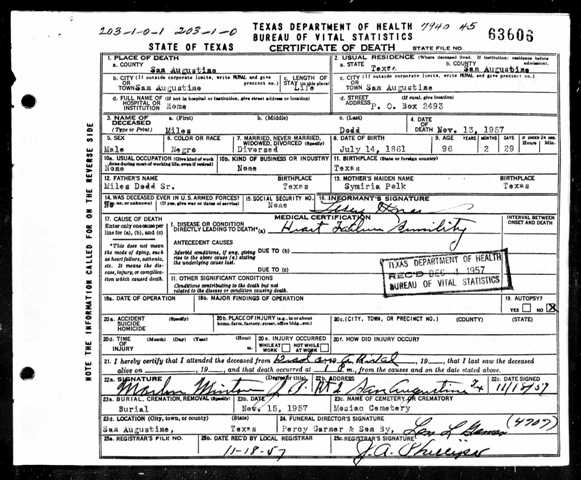 203-1-0-1 203-1-0
TEXAS DEPARTMENT OF HEALTH 7940 45
BUREAU OF VITAL STATISTICS
63606
STATE OF TEXAS CERTIFICATE OF DEATH STATE FILE NO.
1. PLACE OF DEATH
a. COUNTY
San Augustine
2. USUAL RESIDENCE (Where deceased lived. If institution: residence before admission)
a. STATE
Texas
b. COUNTY
San Augustine
b. CITY (If outside corporate limits, write RURAL and give precinct no.)
OR
TOWN San Augustine
c. LENGTH OF STAY (in this place)
Life
c. CITY (If outside corporate limits, write RURAL and give precinct no.)
OR
TOWN San Augustine
d. FULL NAME OF (If not in hospital or institution, give street address or location)
HOSPITAL OR
INSTITUTION Home
d. STREET (If rural, give location)
ADDRESS P. O. Box 2493
3. NAME OF DECEASED
(Type or Print)
a. (First)
Miles
b. (Middle)
c. (Last)
Dodd
4. DATE OF DEATH Nov. 13, 1957
5. SEX
Male
6. COLOR OR RACE
Negro
7. MARRIED, NEVER MARRIED, WIDOWED, DIVORCED (Specify)
Divorsed
8. DATE OF BIRTH
July 14, 1861
9. AGE YEARS MONTHS DAYS
96 2 29
Hours Min.
10a. USUAL OCCUPATION (Give kind of work done during most of working life, even if retired)
None
10b. KIND OF BUSINESS OR INDUSTRY
None
11. BIRTHPLACE (State or foreign country)
Texas
12. FATHER'S NAME
Miles Dodd Sr.
BIRTHPLACE
Texas
13. MOTHER'S MAIDEN NAME
Symiria Polk
BIRTHPLACE
Texas
14. WAS DECEASED EVER IN U.S. ARMED FORCES?
(Yes, no, or unknown) (If yes, give war or dates of service)
No
15. SOCIAL SECURITY NO.
None
16. INFORMANT'S SIGNATURE
MEDICAL CERTIFICATION
INTERVAL BETWEEN ONSET AND DEATH
17. CAUSE OF DEATH
Enter only one cause per line for (a), (b), and (c)
*This does not mean the mode of dying, such as heart failure, asthenia, etc. It means the disease, injury, or complication which caused death.
I. DISEASE OR CONDITION
DIRECTLY LEADING TO DEATH*(a) Heart Failure Senility
ANTECEDENT CAUSES
Morbid conditions, if any, giving rise to the above cause (a) stating the underlying cause last.
DUE TO (b)
DUE TO (c)
II. OTHER SIGNIFICANT CONDITIONS
Conditions contributing to the death but not related to the disease or condition causing death.
TEXAS DEPARTMENT OF HEALTH
REC'D DEC 4 1957
BUREAU OF VITAL STATISTICS
18a. DATE OF OPERATION
18b. MAJOR FINDINGS OF OPERATION
19. AUTOPSY?
YES NO X
20a. ACCIDENT
SUICIDE
HOMICIDE
(Specify)
20b. PLACE OF INJURY (e.g., in or about home, farm, factory, street, office bldg., etc.)
20c. (CITY, TOWN, OR PRECINCT NO.) (COUNTY) (STATE)
20d. TIME OF INJURY
(Month) (Day) (Year) (Hour)
20e. INJURY OCCURRED
WHILE AT WORK NOT WHILE AT WORK
20f. HOW DID INJURY OCCUR?
21. I hereby certify that I attended the deceased from , 19 , that I last saw the deceased
alive on , 19 , and that death occurred at m., from the causes and on the date stated above.
22a. SIGNATURE (Degree or title)
22b. ADDRESS
San Augustine
22c. DATE SIGNED
11/15/57
23a. BURIAL, CREMATION, REMOVAL (Specify)
Burial
23b. DATE
Nov. 15, 1957
23c. NAME OF CEMETERY OR CREMATORY
Mexico Cemetery
23d. LOCATION (City, town, or county) (State)
San Augustine, Texas
24. FUNERAL DIRECTOR'S SIGNATURE
Percy Garner & Son By,
(4707)
25a. REGISTRAR'S FILE NO.
25b. DATE REC'D BY LOCAL REGISTRAR
11-18-57
25c. REGISTRAR'S SIGNATURE
NOTE THE INFORMATION CALLED FOR ON THE REVERSE SIDE